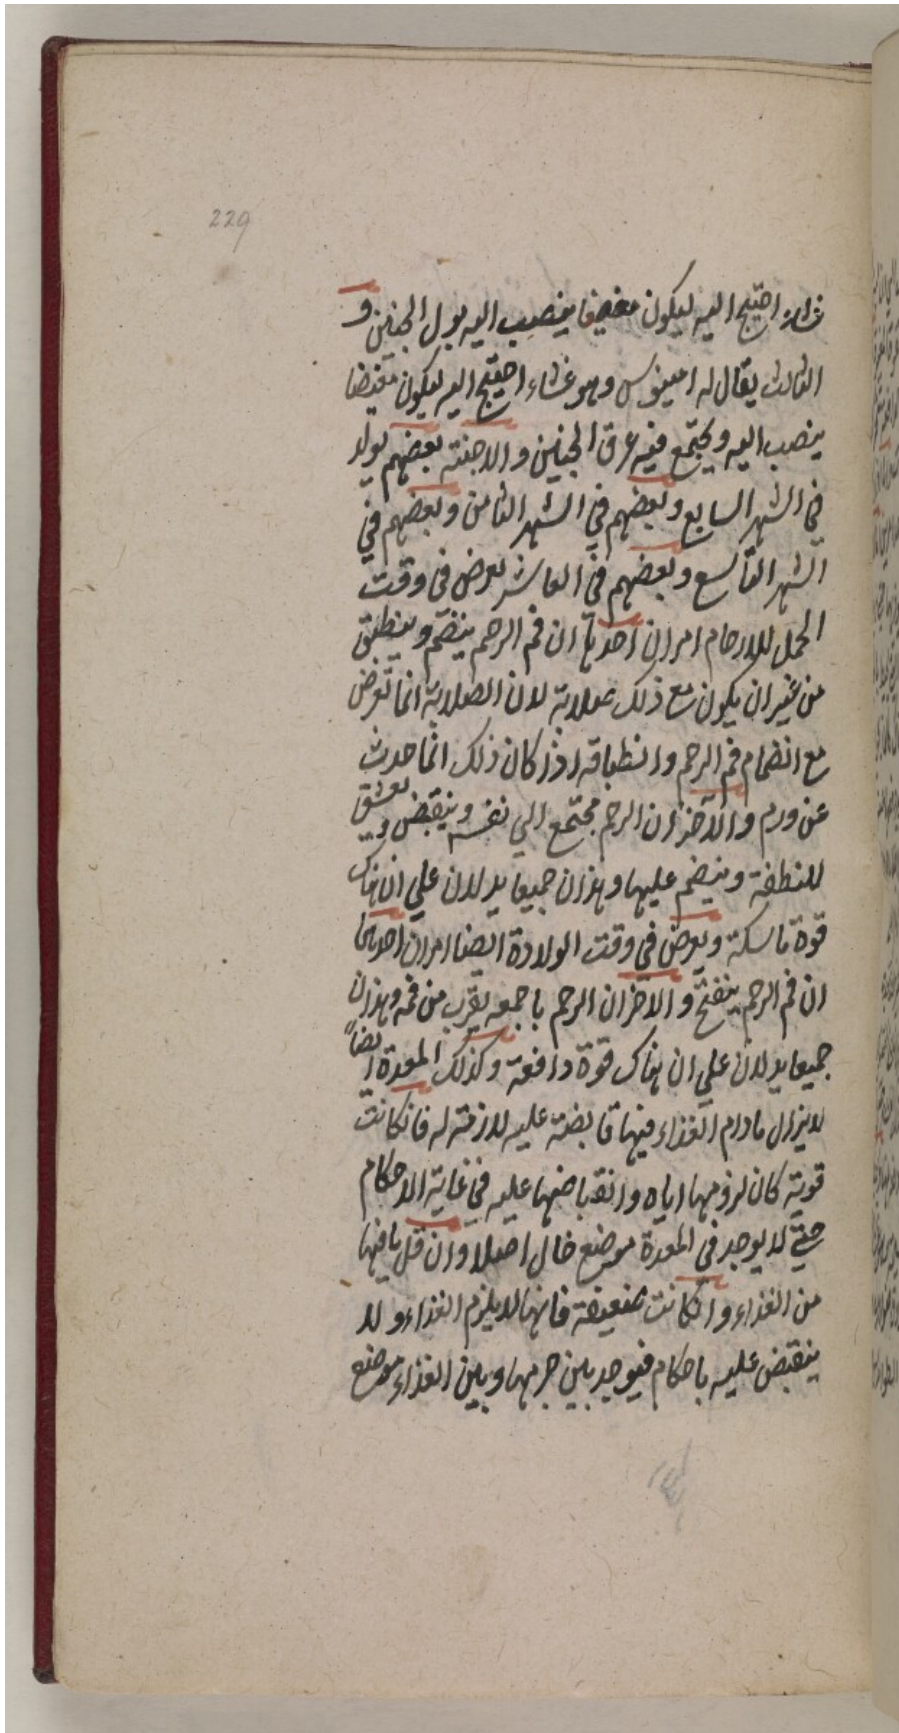 229
غشاء احتيج اليه ليكون مغيضا ينصب اليه بول الجنين و
الثالث يقال له امينوس وهو غشاء احتيج اليه ليكون مغيضا
ينصب اليه ويجتمع فيه عرق الجنين والاجنة بعضهم يولد
في الشهر السابع وبعضهم في الشهر الثامن وبعضهم في
الشهر التاسع وبعضهم في العاشر يعرض في وقت
الحمل للارحام امران احدها ان فم الرحم ينضم وينطبق
من غير ان يكون مع ذلك صلابة لان الصلابة انما تعرض
مع انضمام فم الرحم وانطباقه اذا كان ذلك انما حدث
عن ورم والآخر ان الرحم مجتمع الي نفسه وينقبض و
للنطفة وينضم عليها وهذان جميعا يدلان علي ان هناك
قوة ماسكة ويعرض في وقت الولادة ايضا امران احدهما
ان فم الرحم ينفتح والآخر ان الرحم باجمعه يقرب من فمه وهذان
جميعا يدلان علي ان هناك قوة دافعة وكذلك المعدة ايضاً
لا يزال مادام الغذاء فيها قابضة عليه لازمة له فان كانت
قوية كان لزومها اياه وانقباضها عليه في غاية الاحكام
حتي لا يوجد في المعدة موضع خال اصلا وان قل ما فيها
من الغذاء وان كانت ضعيفة فانها لا يلزم الغذاء ولا
ينقبض عليه باحكام فيوجد بين جرمها وبين الغذاء موضع